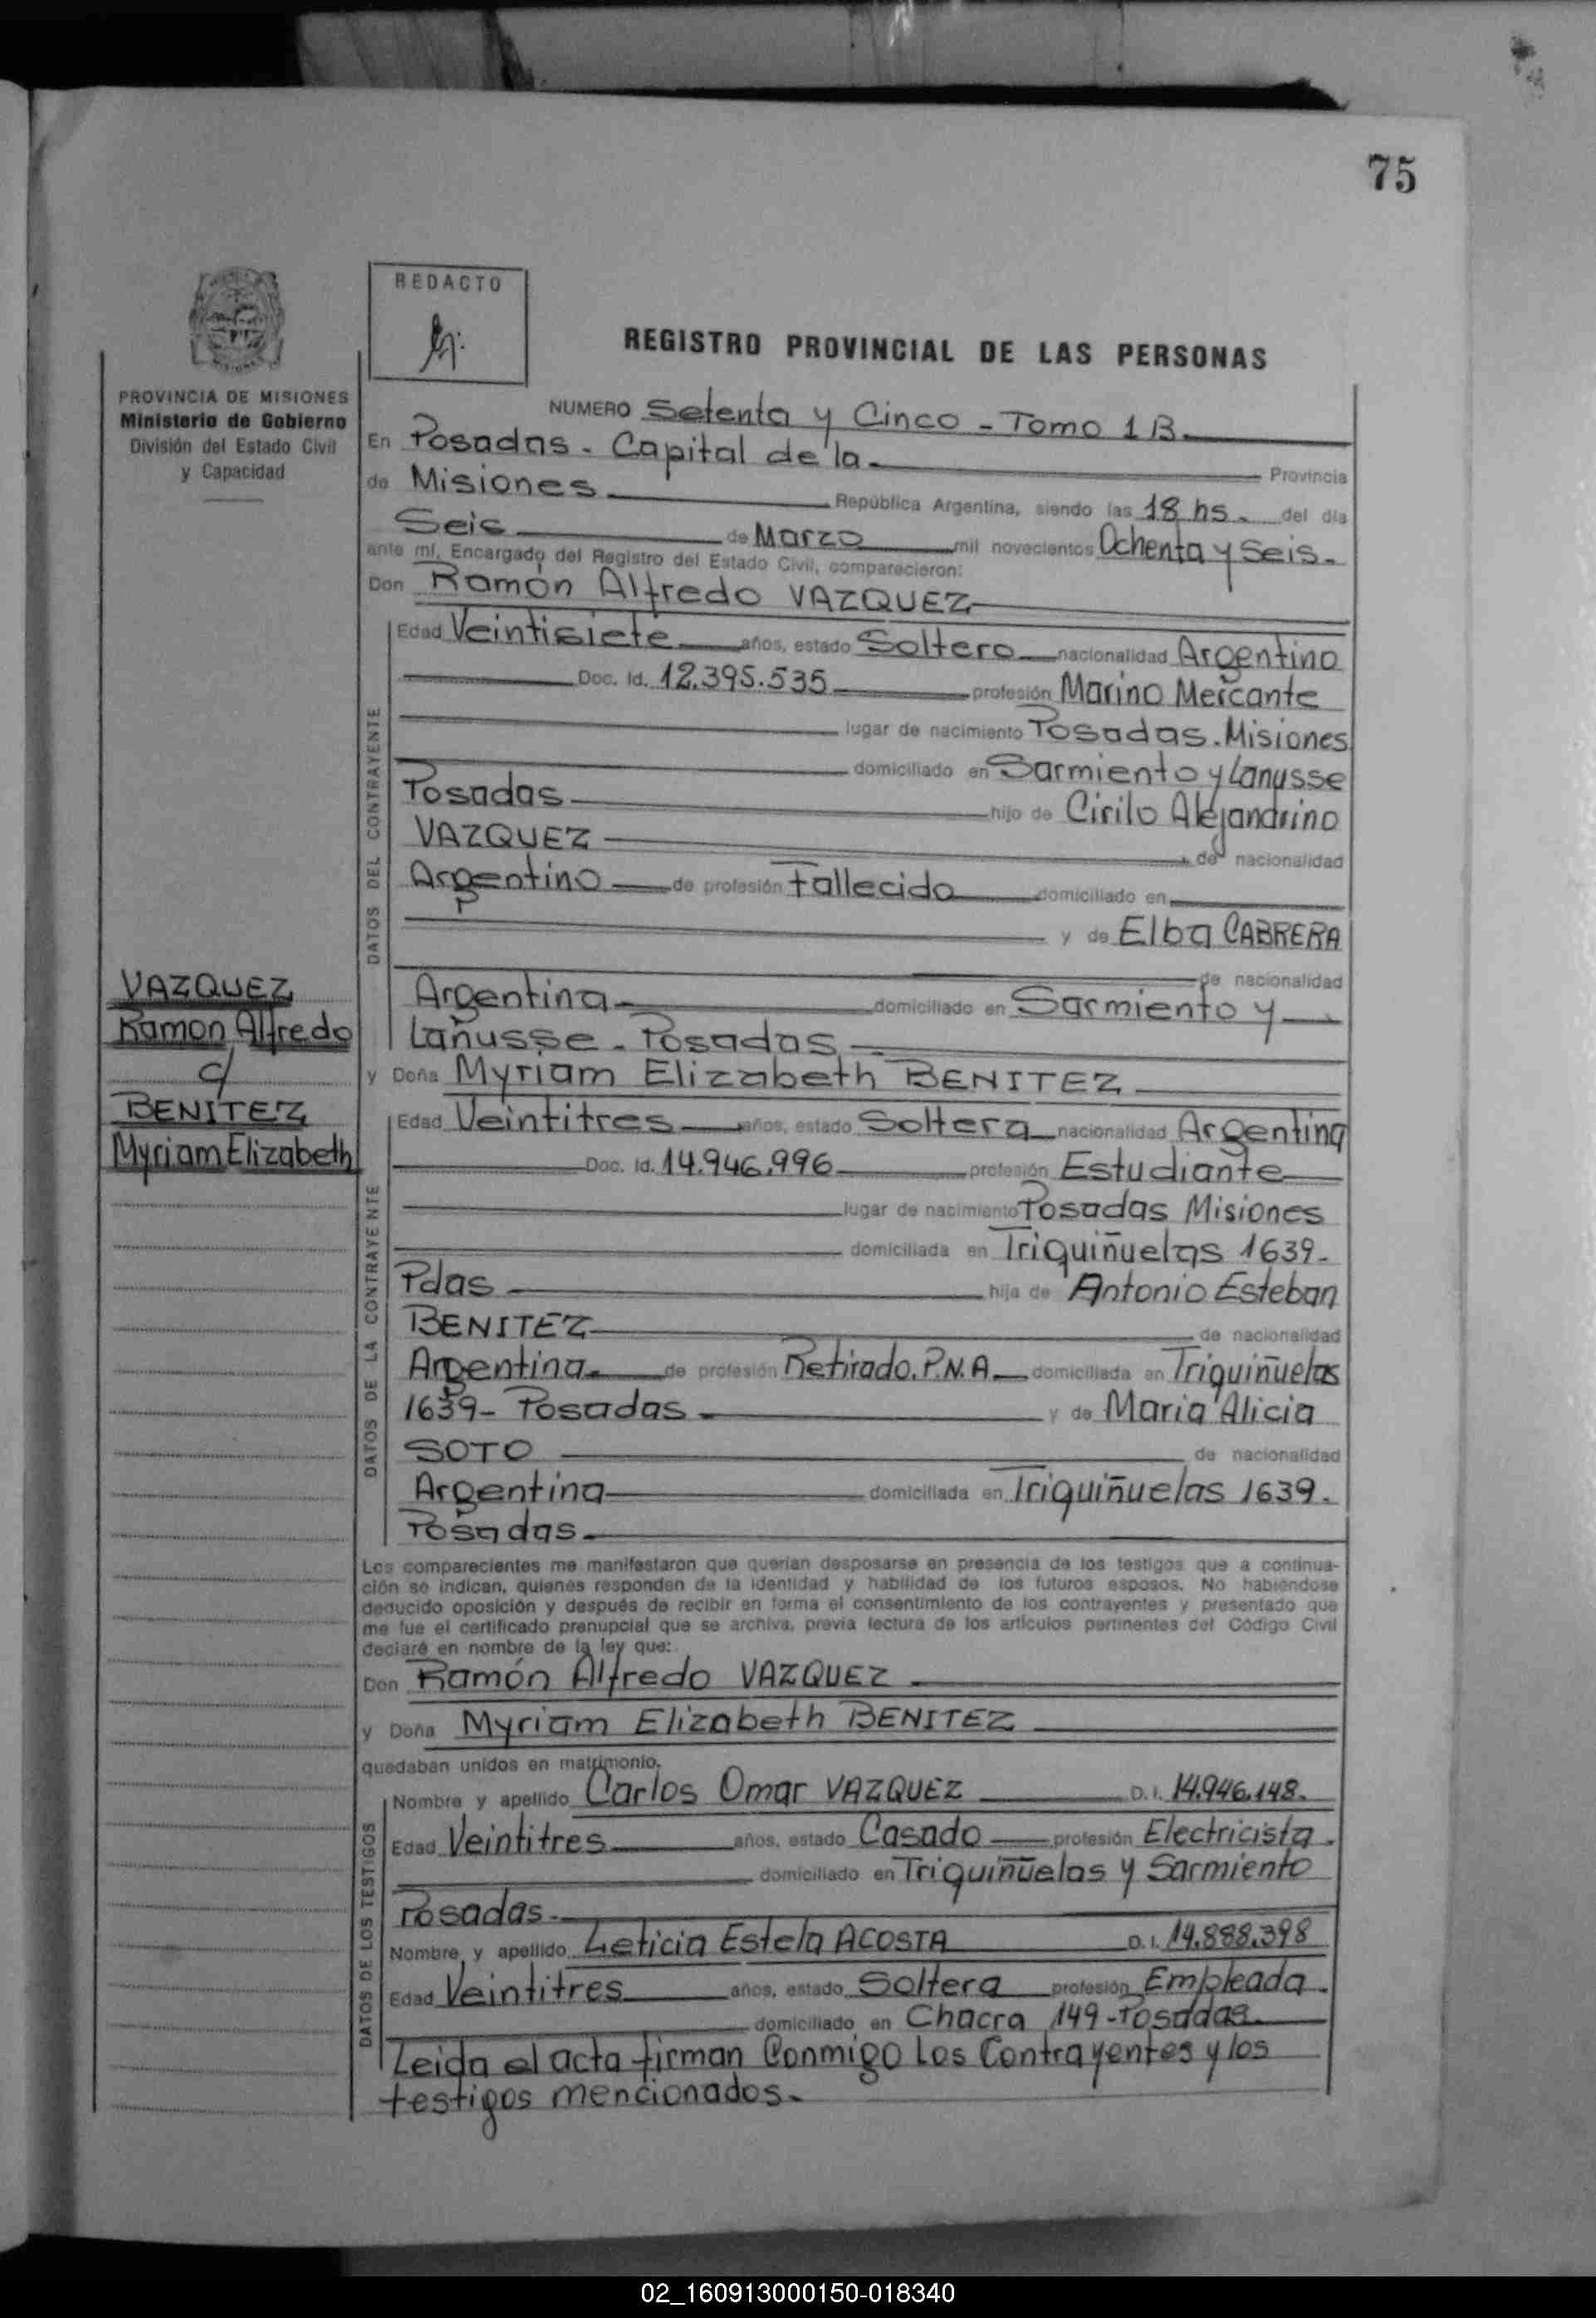 75
REDACTO
REGISTRO PROVINCIAL DE LAS PERSONAS
PROVINCIA DE MISIONES
Ministerio de Gobierno
División del Estado Civil
y Capacidad
NUMERO Setenta y Cinco - Tomo 1B.
En Posadas - Capital de la Provincia
de Misiones República Argentina, siendo las 18 hs. del día
Seis de Marzo mil novecientos Ochenta y Seis.
ante mí, Encargado del Registro del Estado Civil, comparecieron:
Don Ramón Alfredo VAZQUEZ
Edad Veintisiete años, estado Soltero nacionalidad Argentino
Doc. Id. 12.395.535 profesión Marino Mercante
lugar de nacimiento Posadas. Misiones
domiciliado en Sarmiento y Lanusse
Posadas hijo de Cirilo Alejandrino
VAZQUEZ de nacionalidad
Argentino de profesión Fallecido domiciliado en
y de Elba CABRERA
de nacionalidad
Argentina domiciliado en Sarmiento y
Lanusse - Posadas
VAZQUEZ
Ramon Alfredo
c/
BENITEZ
Myriam Elizabeth
y Doña Myriam Elizabeth BENITEZ
Edad Veintitres años, estado Soltera nacionalidad Argentina
Doc. Id. 14.946.996 profesión Estudiante
lugar de nacimiento Posadas Misiones
domiciliada en Triquiñuelas 1639-
Pdas hija de Antonio Esteban
BENITEZ de nacionalidad
Argentina de profesión Retirado. P.N.A. domiciliada en Triquiñuelas
1639- Posadas y de Maria Alicia
SOTO de nacionalidad
Argentina domiciliada en Triquiñuelas 1639.
Posadas.
DATOS DEL CONTRAYENTE
DATOS DE LA CONTRAYENTE
Los comparecientes me manifestaron que querían desposarse en presencia de los testigos que a continua-
ción se indican, quienes responden de la identidad y habilidad de los futuros esposos. No habiéndose
deducido oposición y después de recibir en forma el consentimiento de los contrayentes y presentado que
me fue el certificado prenupcial que se archiva, previa lectura de los artículos pertinentes del Código Civil
declaré en nombre de la ley que:
Don Ramón Alfredo VAZQUEZ
y Doña Myriam Elizabeth BENITEZ
quedaban unidos en matrimonio.
Nombre y apellido Carlos Omar VAZQUEZ D.I. 14.946.148.
Edad Veintitres años, estado Casado profesión Electricista.
domiciliado en Triquiñuelas y Sarmiento
Posadas.
Nombre y apellido Leticia Estela ACOSTA D.I. 14.888.398
Edad Veintitres años, estado Soltera profesión Empleada.
domiciliado en Chacra 149-Posadas.
DATOS DE LOS TESTIGOS
Leida el acta firman Conmigo Los Contrayentes y los
testigos mencionados.
02_160913000150-018340